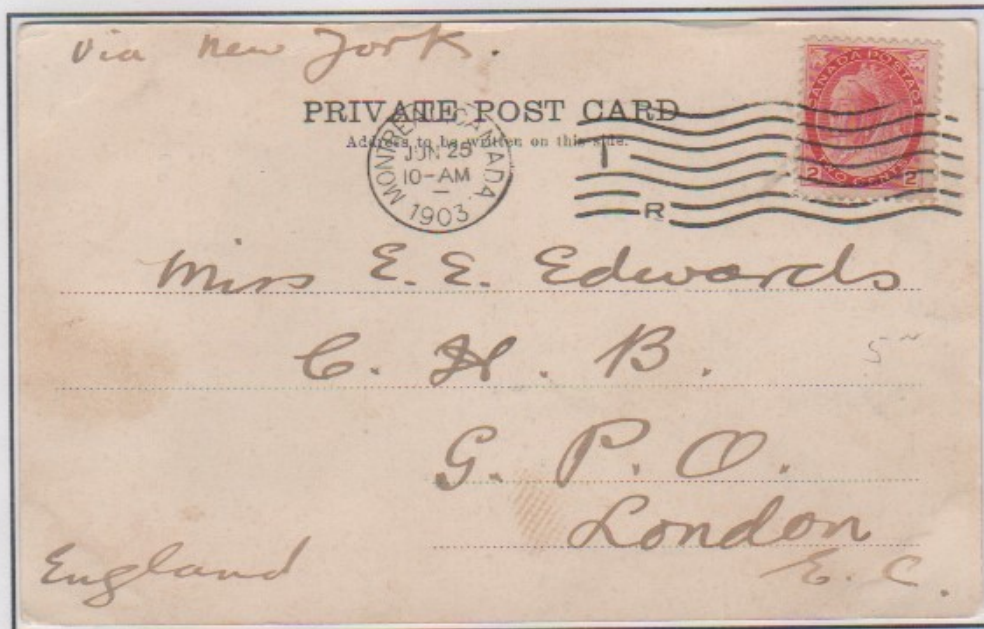 Via New York.
PRIVATE POST CARD
Address to be written on this side.
MONTREAL CANADA
JUN 25
10-AM
1903
I
R
CANADA POSTAGE
TWO CENTS
2 2
Miss E. E. Edwards
C. H. B.
5
G. P. O.
London
E. C.
England